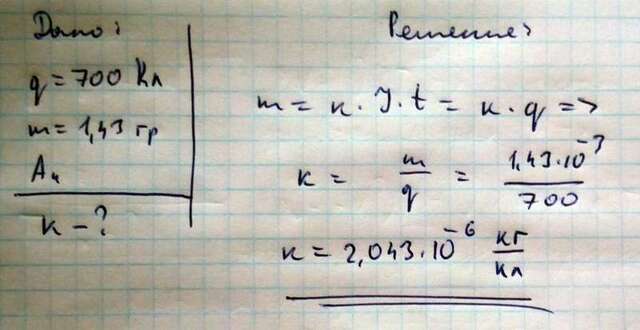 Дано:
q = 700 Кл
m = 1,43 гр
Au
к - ?
Решение:
m = к · J · t = к · q =>
к = m/q = 1,43·10⁻³/700
к = 2,043·10⁻⁶ кг/кл